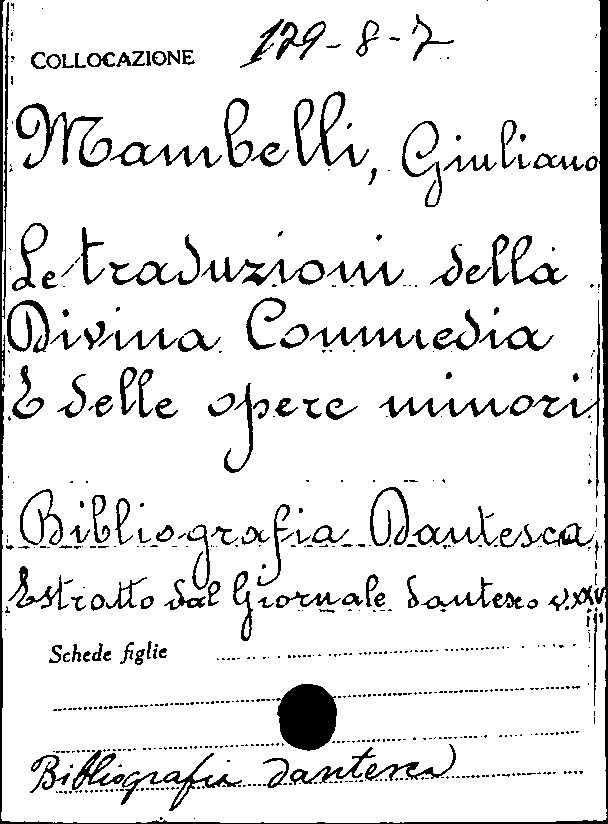 COLLOCAZIONE 179-8-7
Mambelli, Giuliano
Le traduzioni della
Divina Commedia
E delle opere minori
Bibliografia Dantesca
Estratto dal Giornale dantesco v. XXV
III
Schede figlie
Bibliografia dantesca